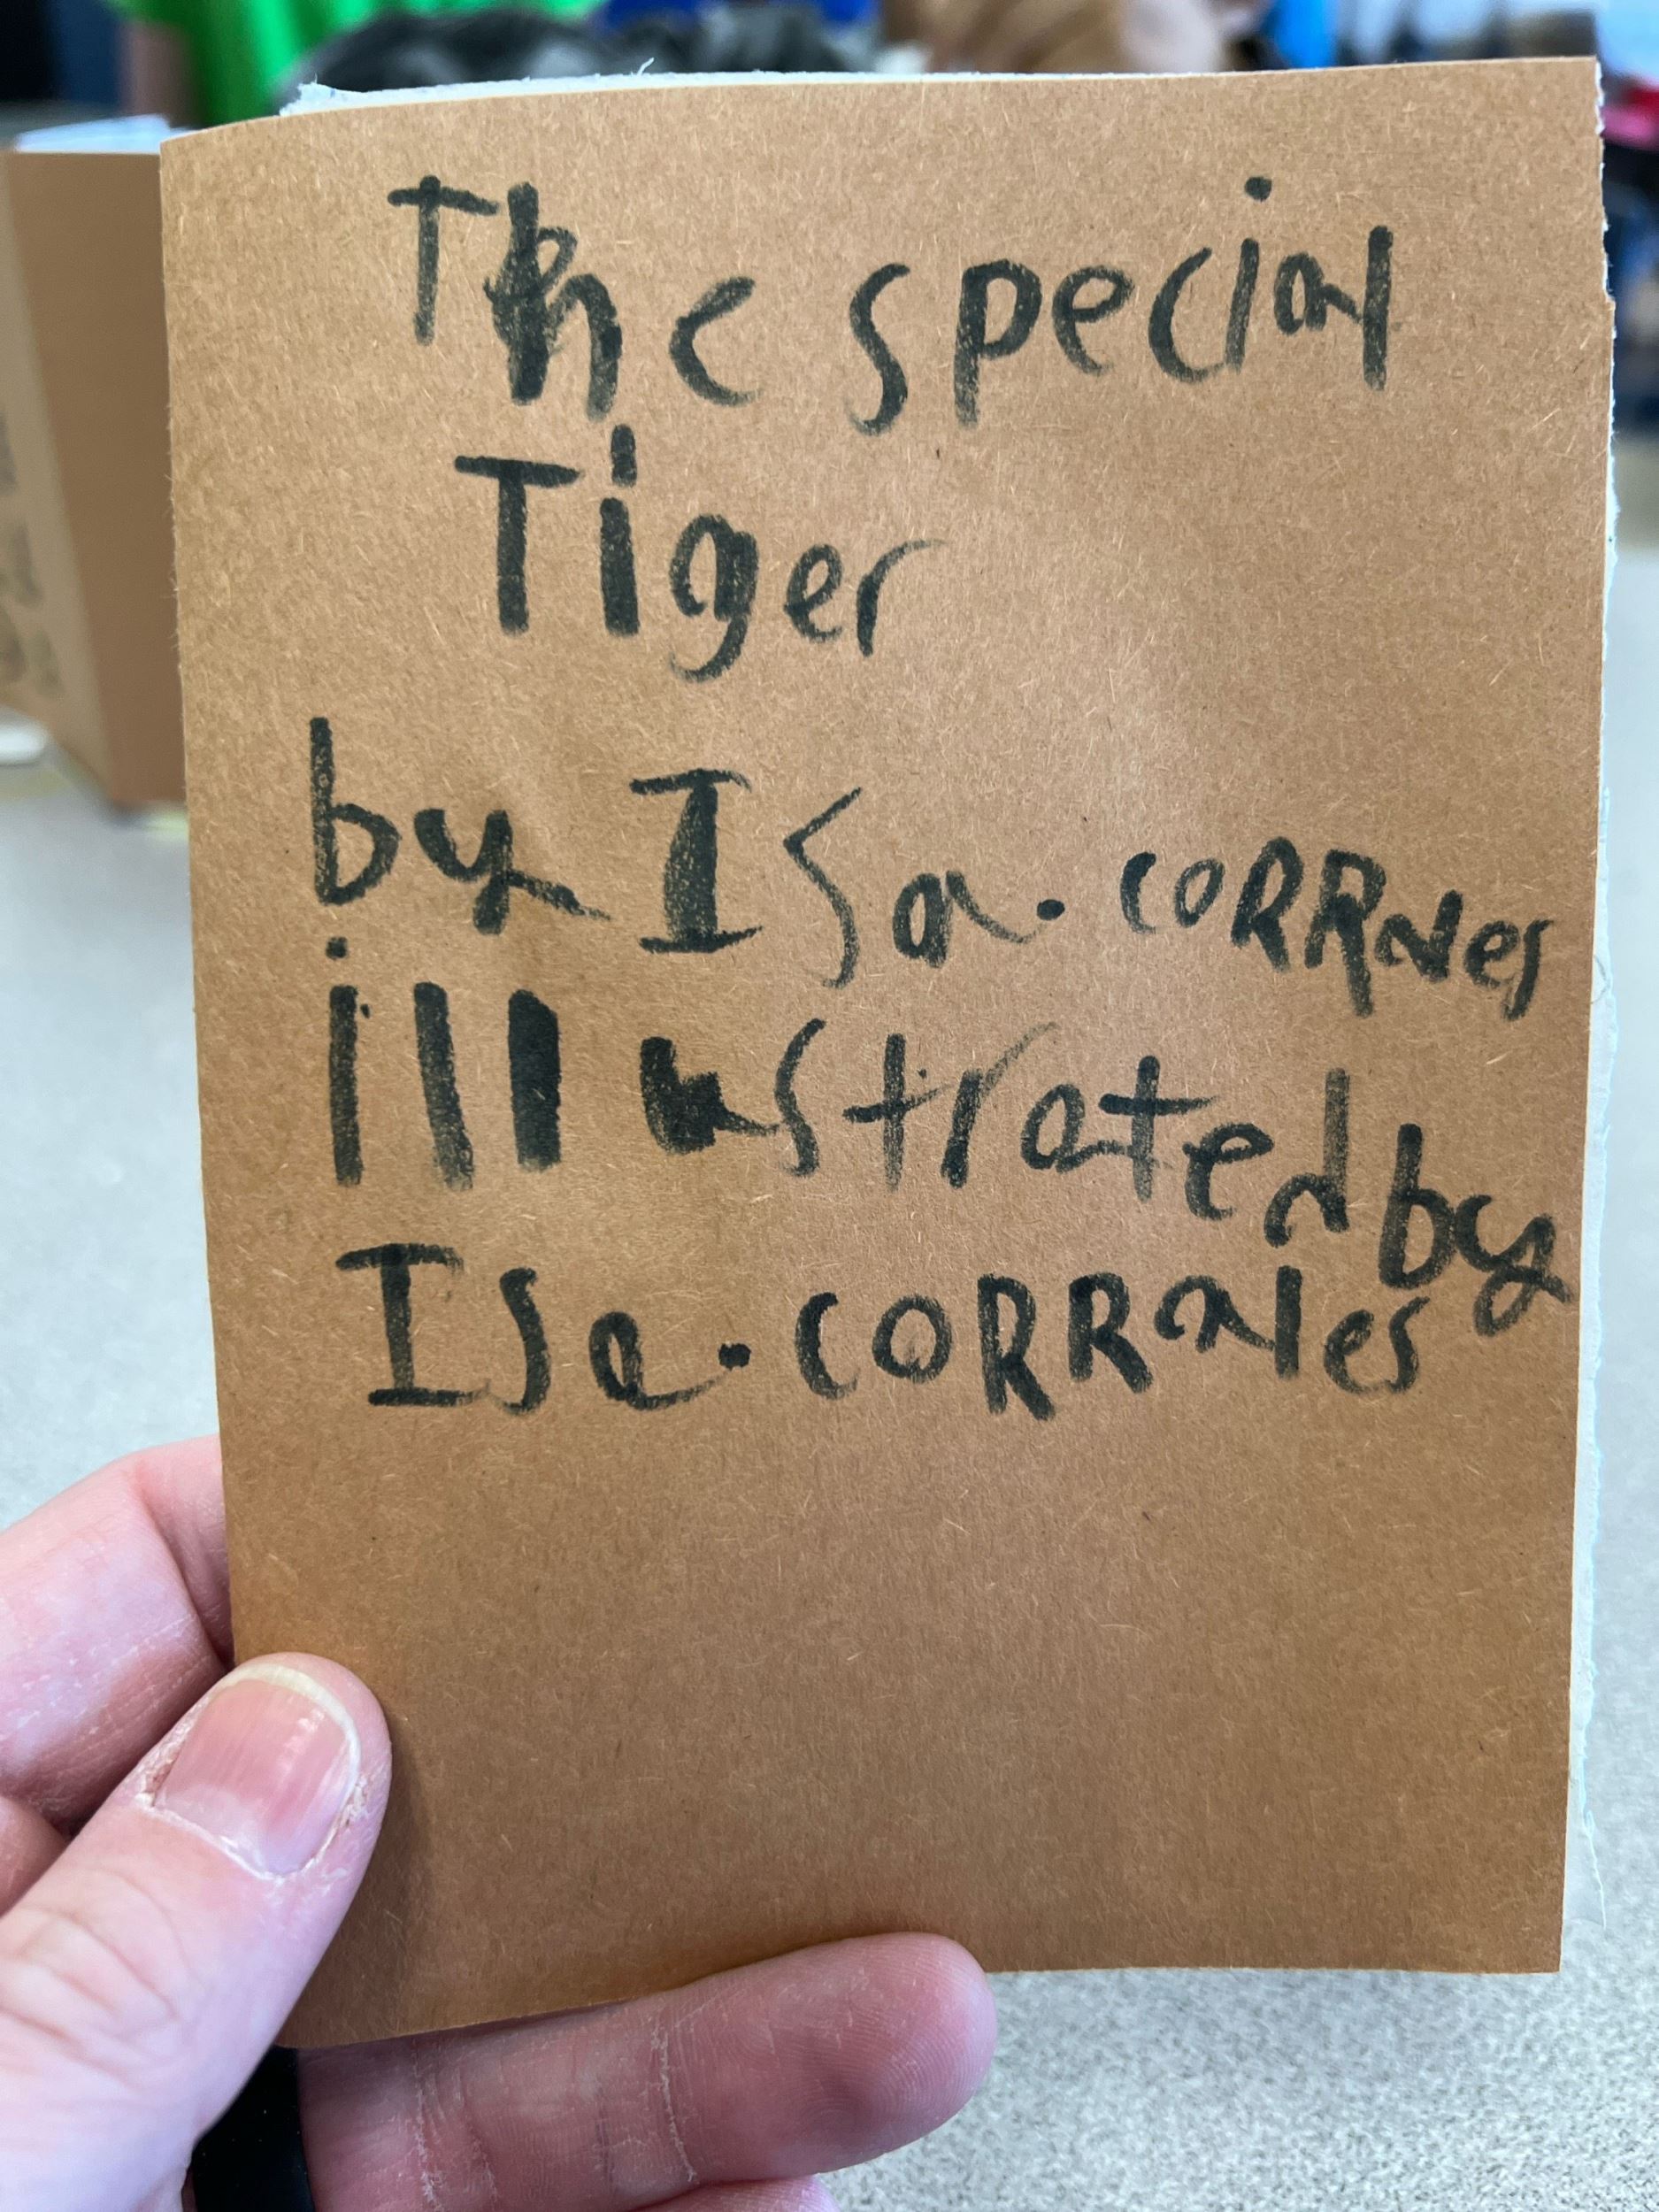 The special
Tiger
by Isa. CORRales
illustrated by
Isa. CORRales